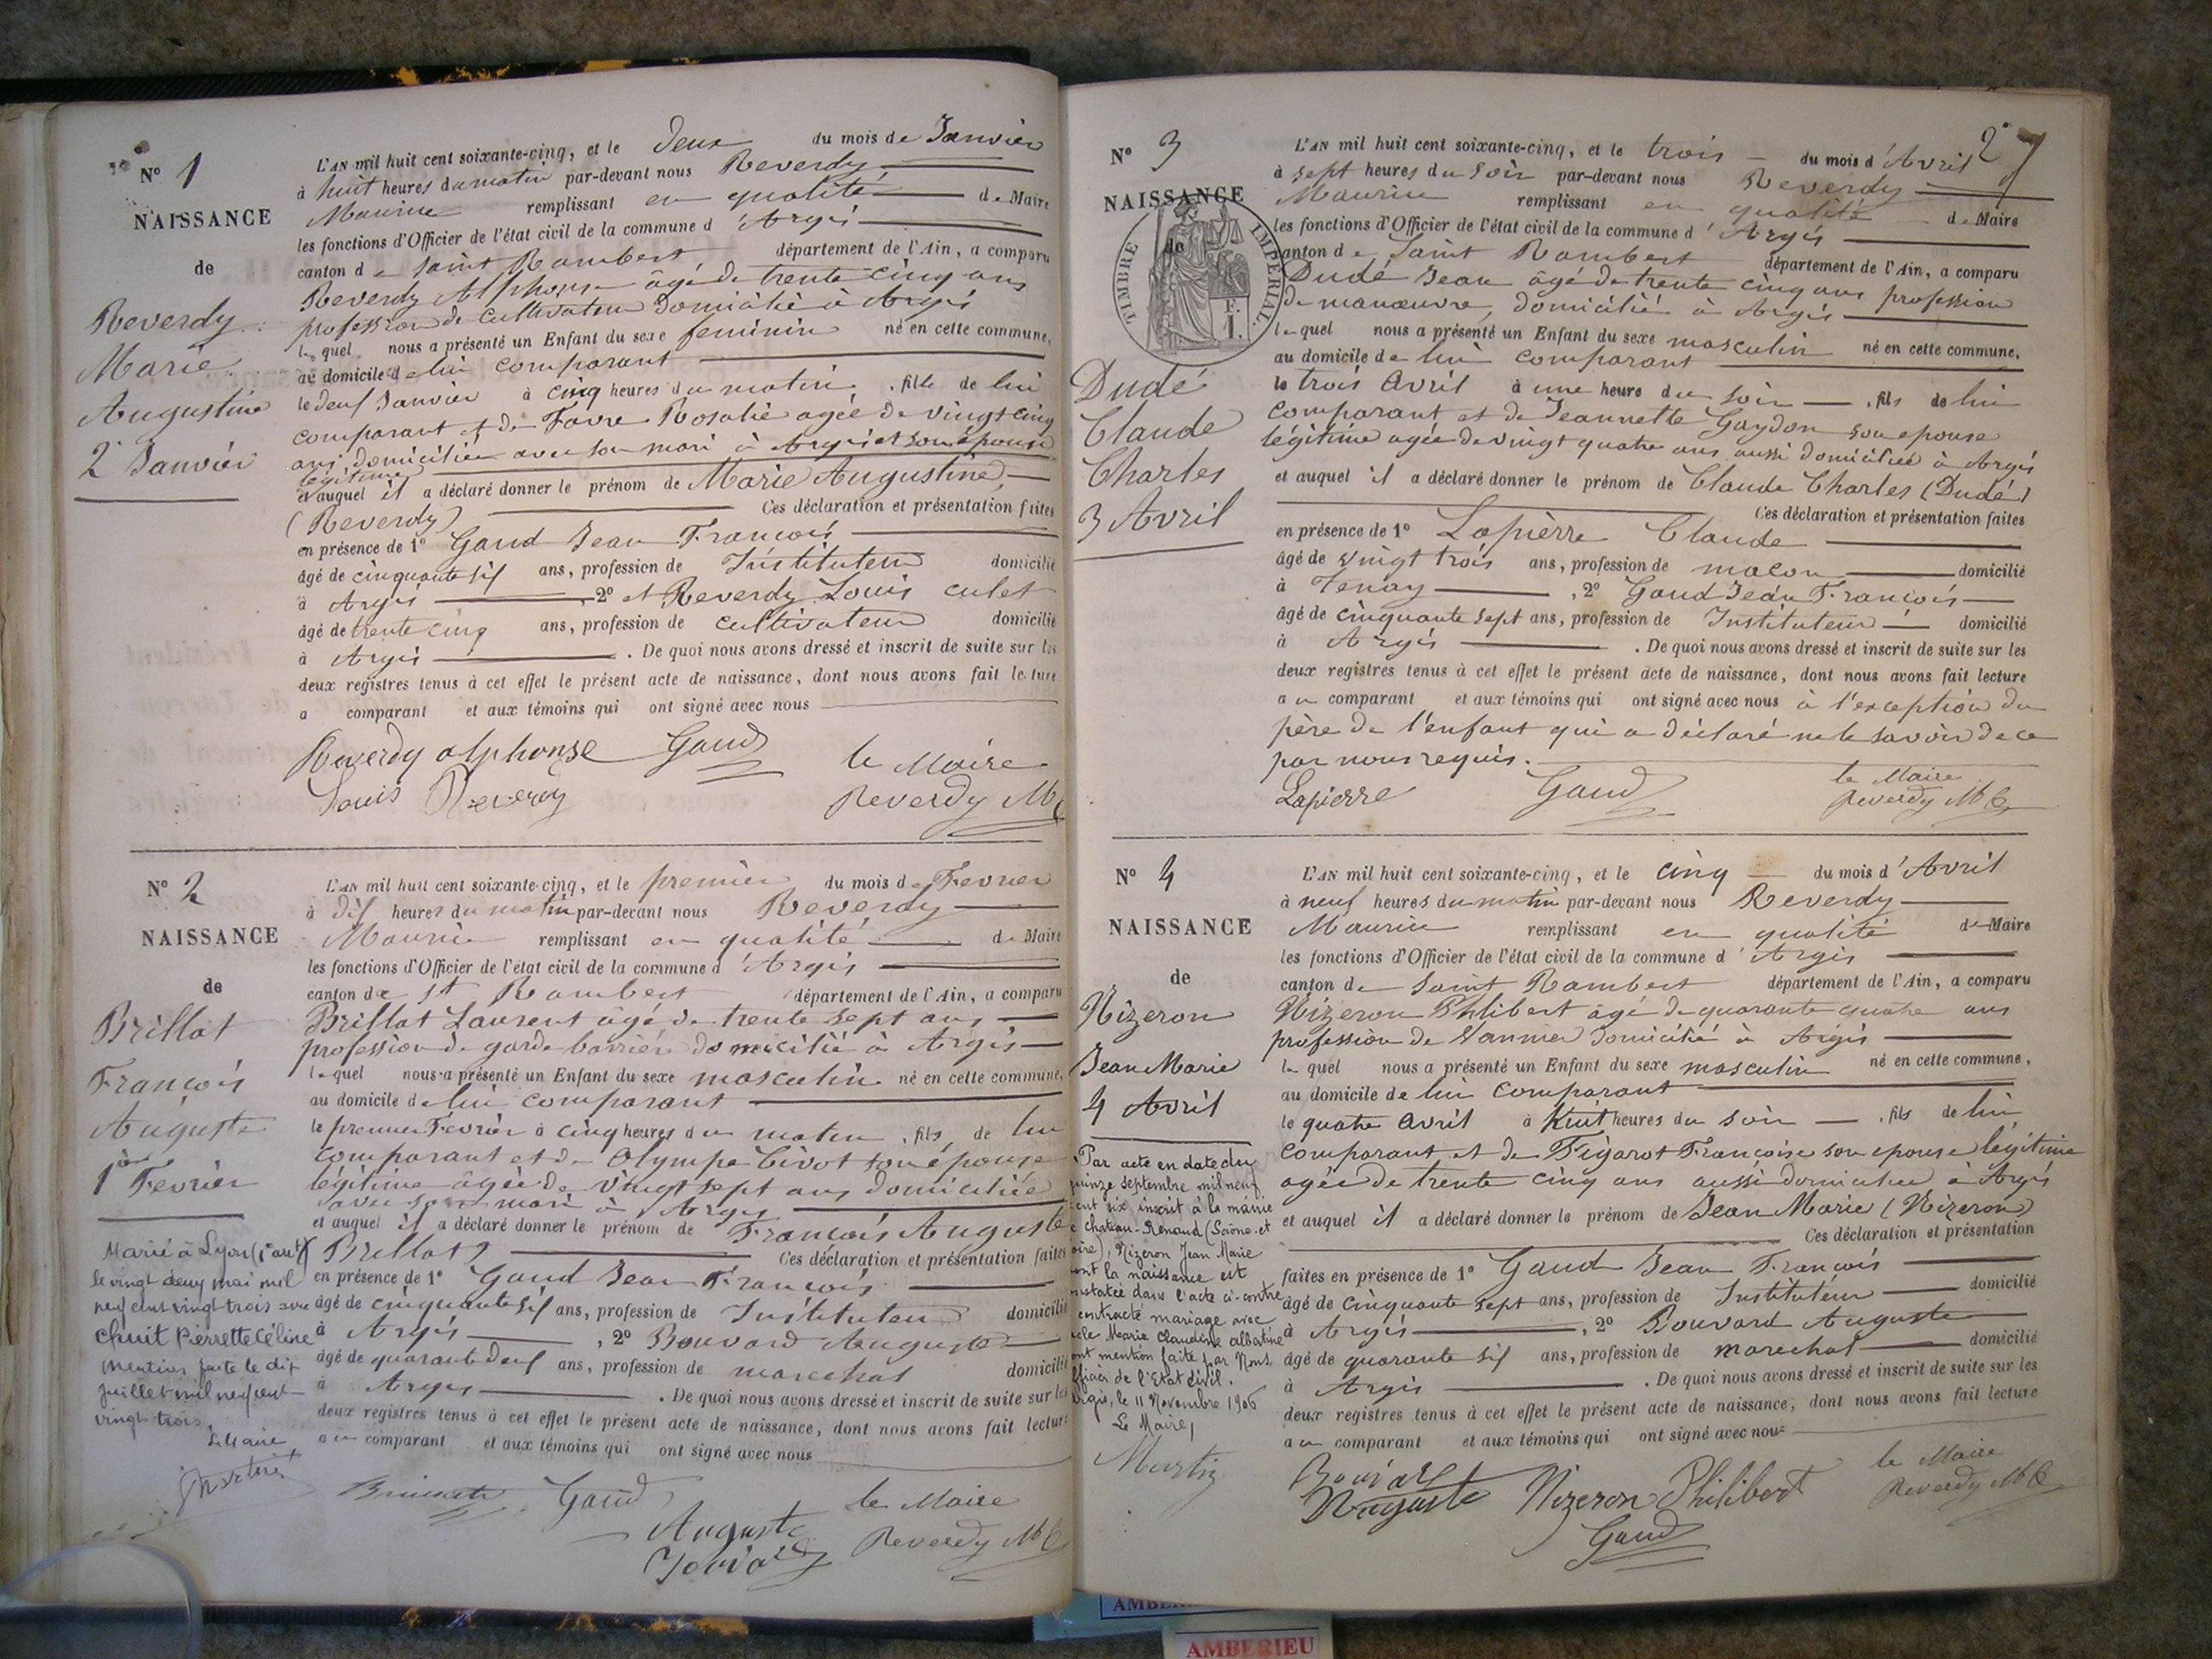 N° 1
NAISSANCE
de
Reverdy
Marie
Augustine
2 Janvier
L'AN mil huit cent soixante-cinq, et le deux du mois de Janvier
à huit heures du matin par-devant nous Reverdy
Maurice remplissant en qualité de Maire
les fonctions d'Officier de l'état civil de la commune d'Argis
canton de Saint Rambert, département de l'Ain, a comparu
Reverdy Alphonse âgé de trente cinq ans
profession de cultivateur domicilié à Argis
lequel nous a présenté un Enfant du sexe feminin né en cette commune,
au domicile de lui comparant
le deux Janvier à cinq heures du matin, fille de lui
comparant et de Favre Rosalie agée de vingt cinq
ans, domiciliée avec son mari à Argis et son épouse
légitime
et auquel il a déclaré donner le prénom de Marie Augustine,
(Reverdy) Ces déclaration et présentation faites
en présence de 1° Gaud Jean François
âgé de cinquante six ans, profession de Instituteur domicilié
à Argis, 2° et Reverdy Louis culet
âgé de trente cinq ans, profession de cultivateur domicilié
à Argis. De quoi nous avons dressé et inscrit de suite sur les
deux registres tenus à cet effet le présent acte de naissance, dont nous avons fait lecture
a comparant et aux témoins qui ont signé avec nous
Reverdy alphonse Gaud le Maire
Louis Reverdy Reverdy
N° 2
NAISSANCE
de
Brillat
François
Auguste
1er Fevrier
Marié à Lyon
le vingt deux mai mil
neuf cent vingt trois avec
Chuit Pierrette Céline
Mention faite le dix
juillet mil neuf cent
vingt trois.
Le Maire
L'AN mil huit cent soixante-cinq, et le premier du mois de Fevrier
à dix heures du matin par-devant nous Reverdy
Maurice remplissant en qualité de Maire
les fonctions d'Officier de l'état civil de la commune d'Argis
canton de St Rambert département de l'Ain, a comparu
Brillat Laurent âgé de trente sept ans
profession de garde barrière domicilié à Argis
lequel nous a présenté un Enfant du sexe masculin né en cette commune,
au domicile de lui comparant
le premier Fevrier à cinq heures du matin, fils de lui
comparant et de Olympe Civot son épouse
légitime âgée de vingt sept ans domiciliée
avec son mari à Argis
et auquel il a déclaré donner le prénom de François Auguste
(Brillat) Ces déclaration et présentation faites
en présence de 1° Gaud Jean François
âgé de cinquante six ans, profession de Instituteur domicilié
à Argis, 2° Bouvard Auguste
âgé de quarante deux ans, profession de marechal domicilié
à Argis. De quoi nous avons dressé et inscrit de suite sur les
deux registres tenus à cet effet le présent acte de naissance, dont nous avons fait lecture
au comparant et aux témoins qui ont signé avec nous
Gaud le Maire
Auguste Reverdy
27
N° 3
NAISSANCE
de
TIMBRE IMPERIAL
Dudé
Claude
Charles
3 Avril
L'AN mil huit cent soixante-cinq, et le trois du mois d'Avril
à sept heures du soir par-devant nous Reverdy
Maurice remplissant en qualité de Maire
les fonctions d'Officier de l'état civil de la commune d'Argis
canton de Saint Rambert département de l'Ain, a comparu
Dudé Jean âgé de trente cinq ans profession
de manœuvre, domicilié à Argis
lequel nous a présenté un Enfant du sexe masculin né en cette commune,
au domicile de lui comparant
le trois Avril à une heure du soir, fils de lui
comparant et de Jeannette Gaydon son epouse
légitime agée de vingt quatre ans aussi domiciliée à Argis
et auquel il a déclaré donner le prénom de Claude Charles (Dudé)
Ces déclaration et présentation faites
en présence de 1° Lapierre Claude
âgé de vingt trois ans, profession de maçon domicilié
à Tenay, 2° Gaud Jean François
âgé de cinquante sept ans, profession de Instituteur domicilié
à Argis. De quoi nous avons dressé et inscrit de suite sur les
deux registres tenus à cet effet le présent acte de naissance, dont nous avons fait lecture
au comparant et aux témoins qui ont signé avec nous à l'exception du
père de l'enfant qui a déclaré ne le savoir de ce
par nous requis.
Lapierre Gaud le Maire
Reverdy
N° 4
NAISSANCE
de
Nizeron
Jean Marie
4 Avril
Par acte en date du
quinze septembre mil neuf
cent six, inscrit à la mairie
Chateau-Renaud (Saône-et
Loire), Nizeron Jean Marie
dont la naissance est
constatée dans l'acte ci-contre
contracté mariage avec
Marie Claudine albatine
dont mention faite par Nous,
Officier de l'Etat civil.
Argis, le 11 Novembre 1906
Le Maire,
Martin
L'AN mil huit cent soixante-cinq, et le cinq du mois d'Avril
à neuf heures du matin par-devant nous Reverdy
Maurice remplissant en qualité de Maire
les fonctions d'Officier de l'état civil de la commune d'Argis
canton de Saint Rambert département de l'Ain, a comparu
Nizeron Philibert âgé de quarante quatre ans
profession de Vannier domicilié à Argis
lequel nous a présenté un Enfant du sexe masculin né en cette commune,
au domicile de lui comparant
le quatre Avril à huit heures du soir, fils de lui
comparant et de Figarot Françoise son epouse légitime
agée de trente cinq ans aussi domiciliée à Argis
et auquel il a déclaré donner le prénom de Jean Marie (Nizeron)
Ces déclaration et présentation
faites en présence de 1° Gaud Jean François
âgé de cinquante sept ans, profession de Instituteur domicilié
à Argis, 2° Bouvard Auguste
âgé de quarante six ans, profession de marechal domicilié
à Argis. De quoi nous avons dressé et inscrit de suite sur les
deux registres tenus à cet effet le présent acte de naissance, dont nous avons fait lecture
au comparant et aux témoins qui ont signé avec nous
le Maire
Auguste Nizeron Philibert Reverdy
Gaud
AMBERIEU